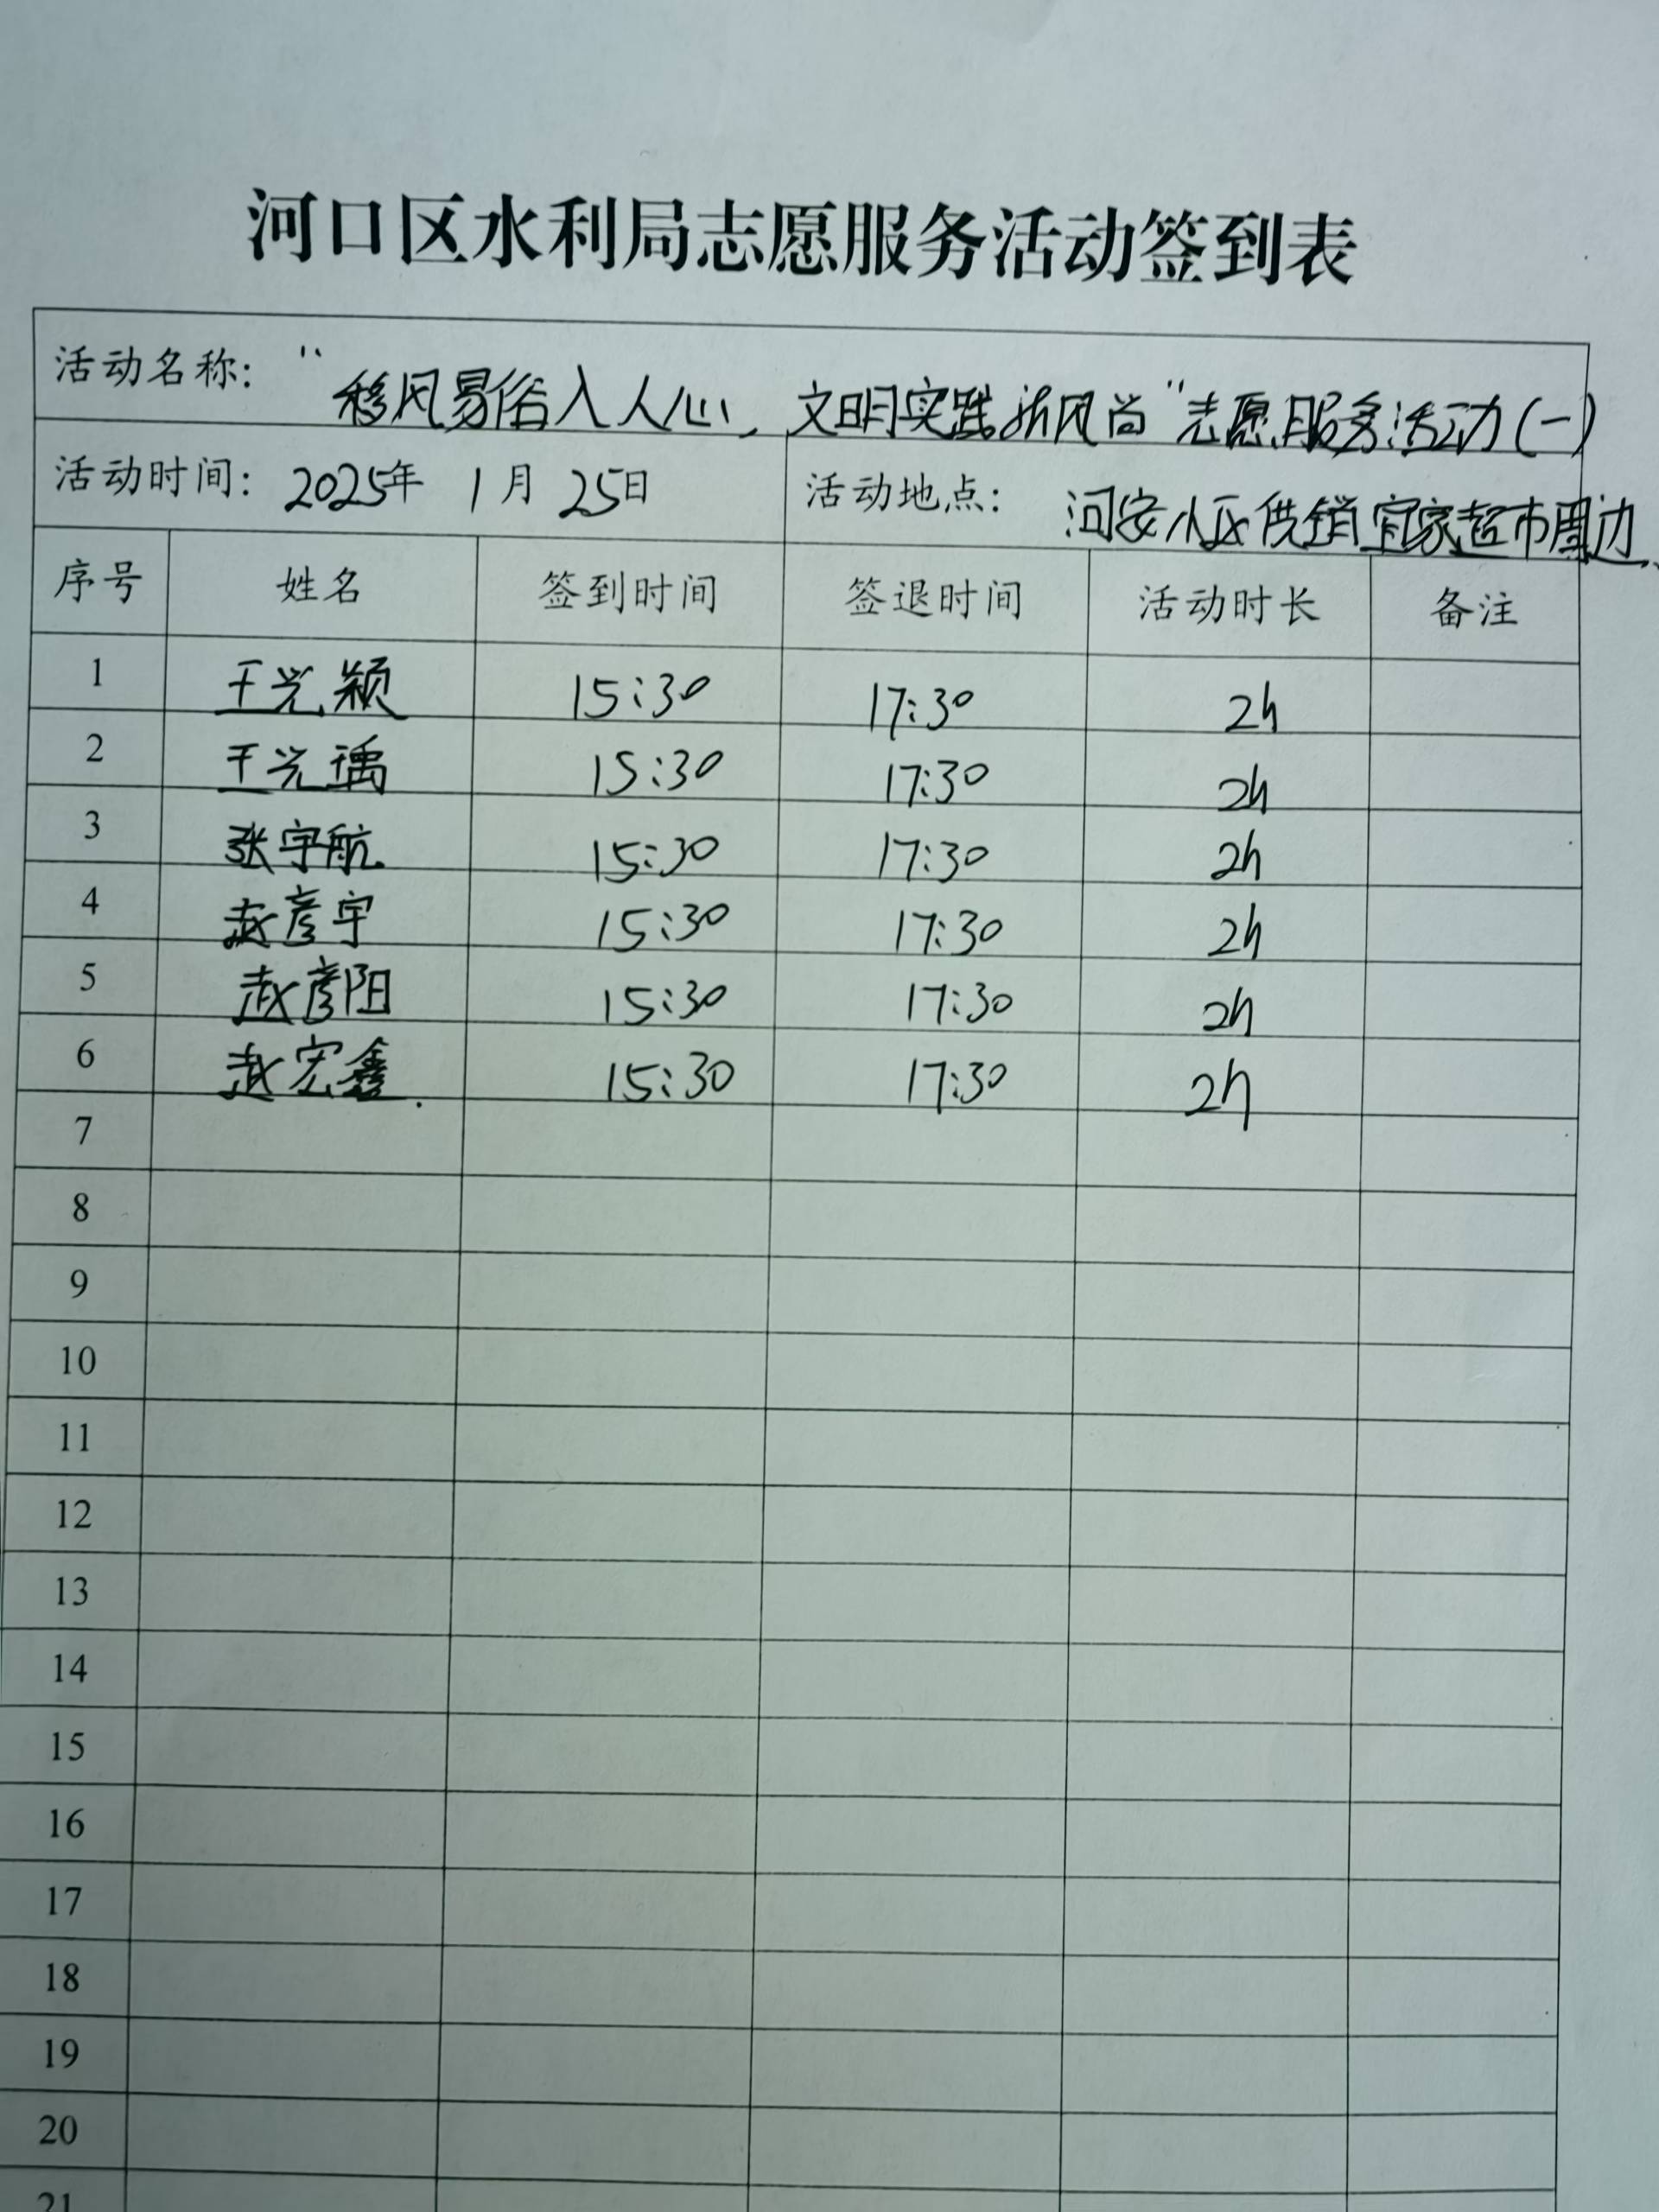 河口区水利局志愿服务活动签到表
活动名称: "移风易俗入人心、文明实践新风尚"志愿服务活动(一)
活动时间: 2025年 1月 25日 活动地点: 河安小区供销宜家超市周边
序号 姓名 签到时间 签退时间 活动时长 备注
1 王光颖 15:30 17:30 2h
2 王光瑀 15:30 17:30 2h
3 张宇航 15:30 17:30 2h
4 赵彦宇 15:30 17:30 2h
5 赵彦阳 15:30 17:30 2h
6 赵宏鑫 15:30 17:30 2h
7
8
9
10
11
12
13
14
15
16
17
18
19
20
21